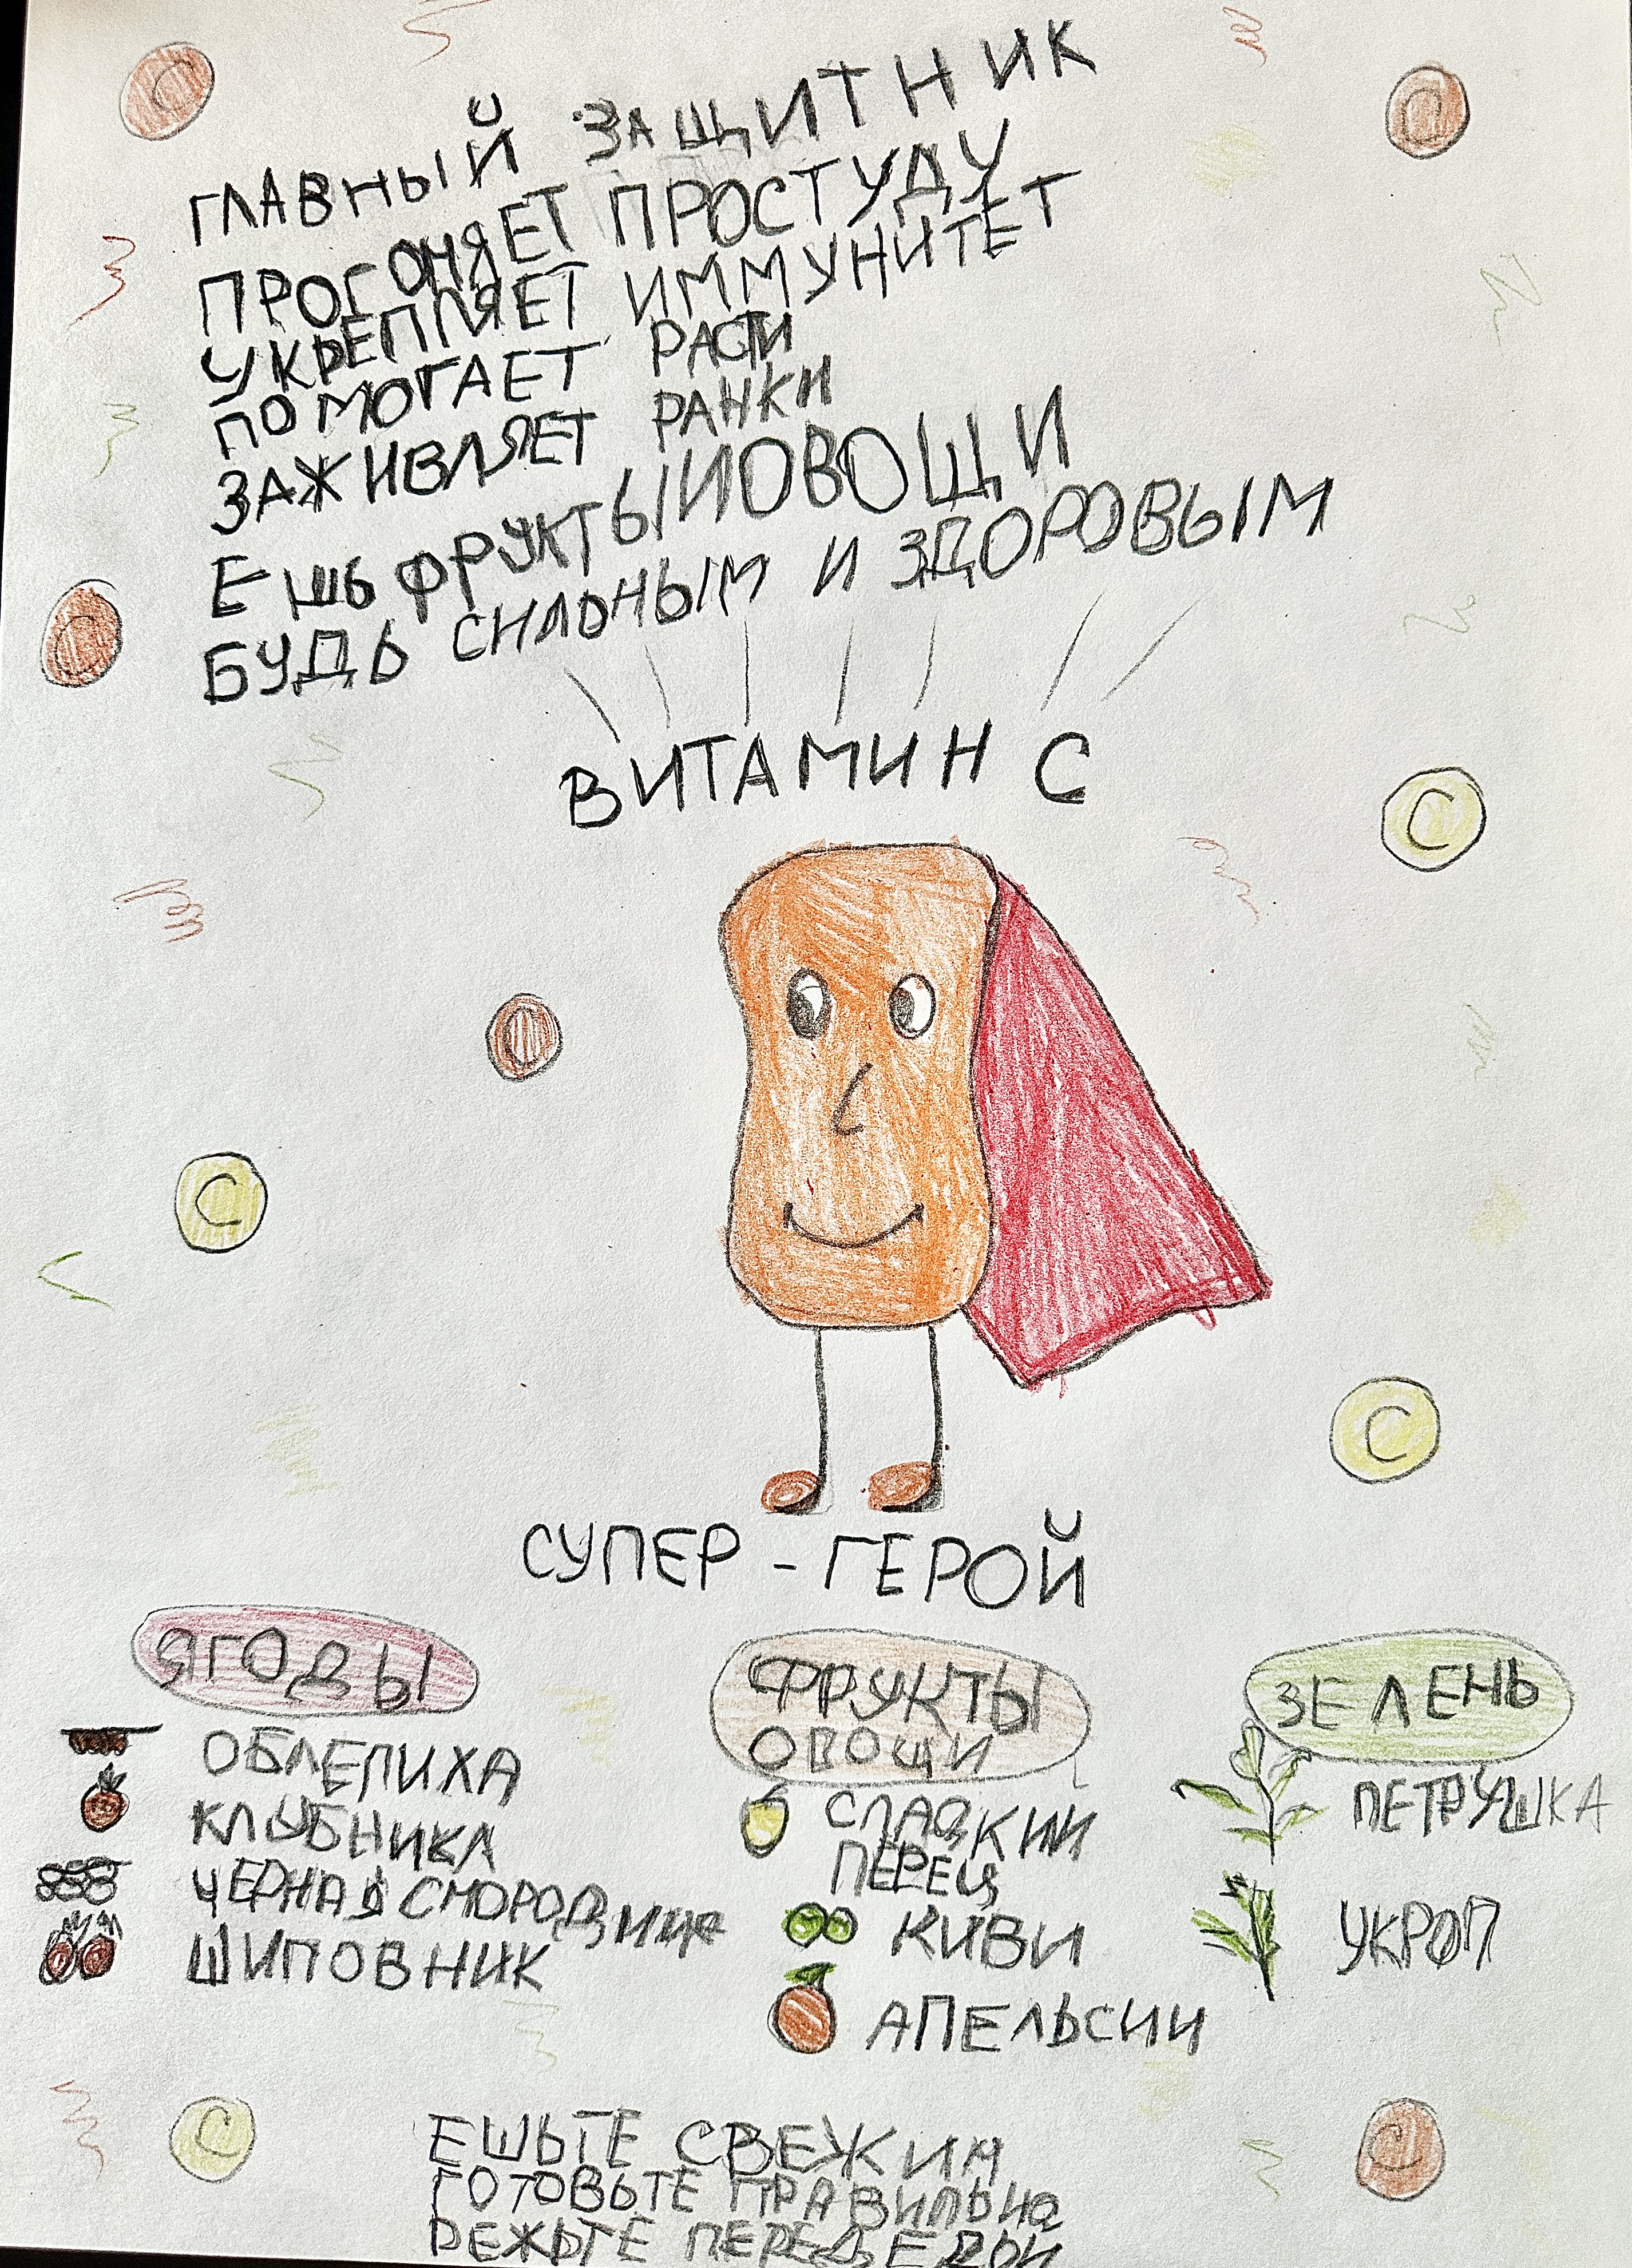 ГЛАВНЫЙ ЗАЩИТНИК
ПРОГОНЯЕТ ПРОСТУДУ
УКРЕПЛЯЕТ ИММУНИТЕТ
ПОМОГАЕТ РАСТИ
ЗАЖИВЛЯЕТ РАНКИ
ЕШЬ ФРУКТЫ И ОВОЩИ
БУДЬ СИЛЬНЫМ И ЗДОРОВЫМ
ВИТАМИН С
С
С
С
С
С
С
С
С
СУПЕР - ГЕРОЙ
ЯГОДЫ
ОБЛЕПИХА
КЛУБНИКА
ЧЕРНАЯ СМОРОДИНА
ШИПОВНИК
ФРУКТЫ
ОВОЩИ
СЛАДКИЙ
ПЕРЕЦ
КИВИ
АПЕЛЬСИН
ЗЕЛЕНЬ
ПЕТРУШКА
УКРОП
ЕШЬТЕ
ГОТОВЬТЕ ПРАВИЛЬНО
РЕЖЬТЕ ПЕРЕД ЕДОЙ